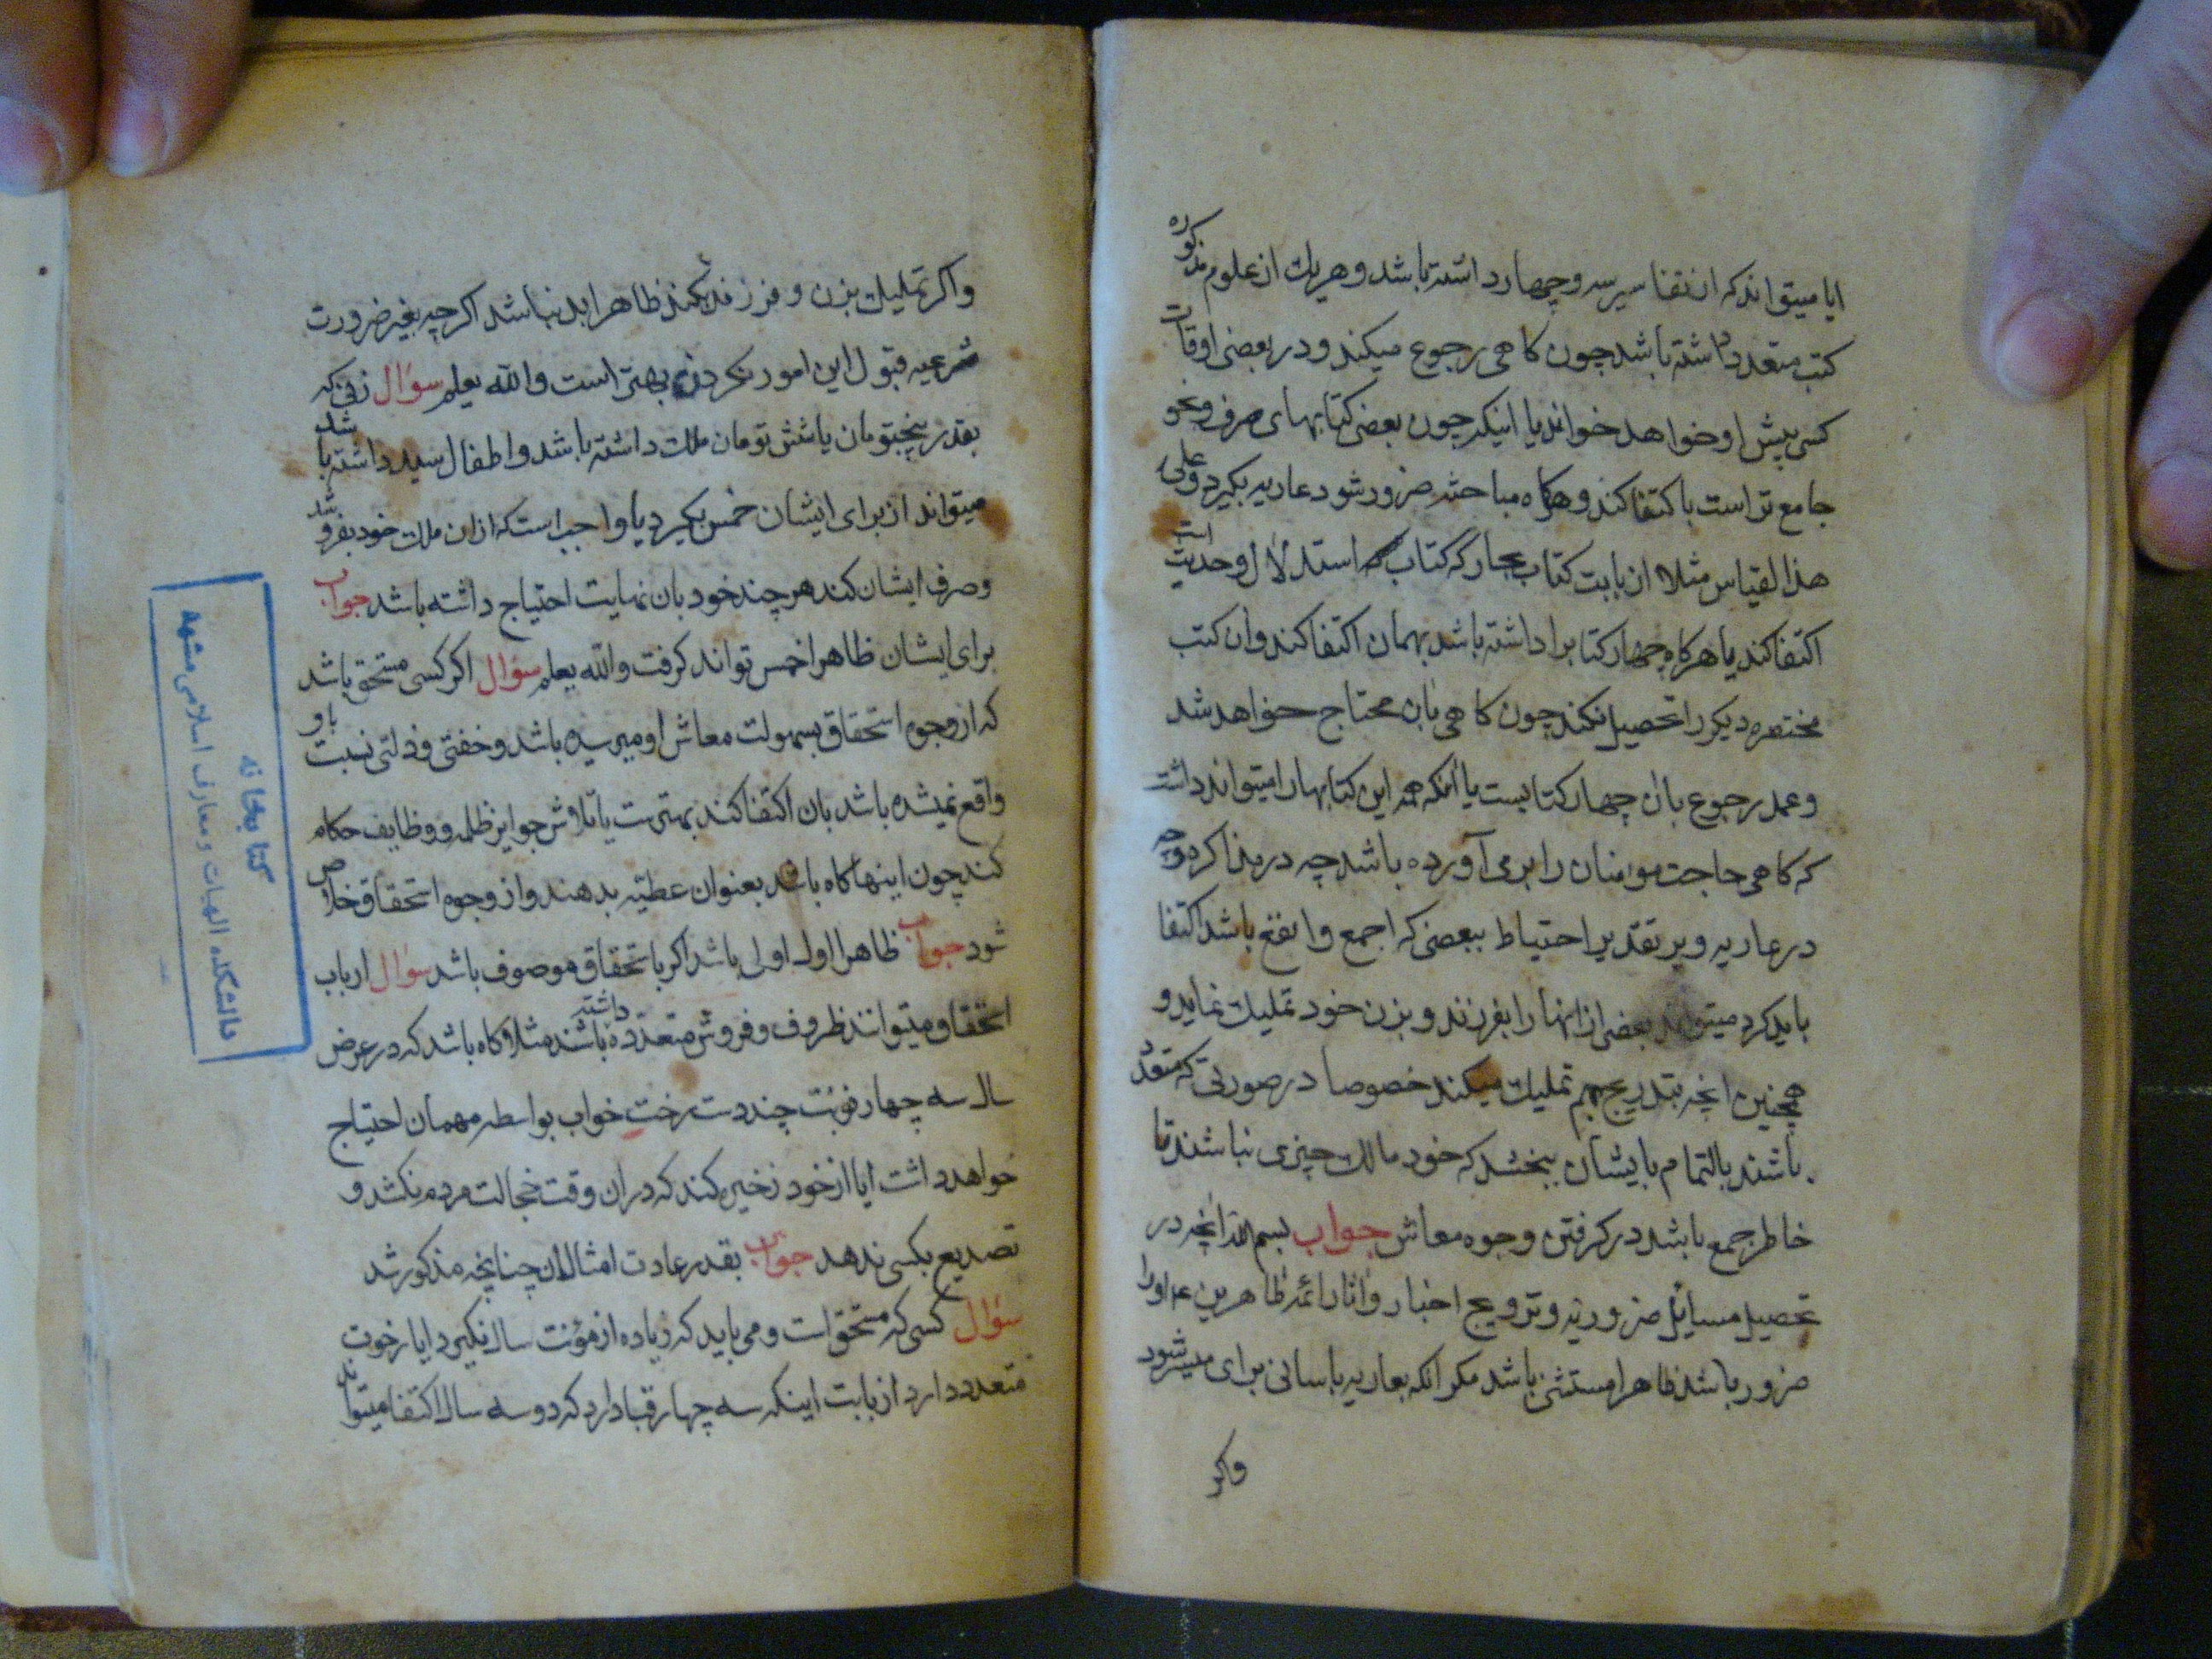 ایا میتواند که از تفاسیر سه و چهار داشته باشد و هر یك از علوم مذکوره
کتب متعدد داشته باشد چون کاهی رجوع میکند و در بعضی اوقات
کسی پیش او خواهد خواند یا اینکه چون بعضی کتابهای صرف و نحو
جامع تر است باکتفا کند و هرکاه مباحثه ضرور شود عاریه بکیرد و علی
هذا القیاس مثلا از بابت کتاب بحار که کتاب استدلال و حدیث است
اکتفا کند یا هرکاه چهار کتابرا داشته باشد بهمان اکتفا کند و ان کتب
مختصره دیکر را تحصیل نکند چون کاهی بان محتاج خواهد شد
و عمد رجوع بان چهار کتابست یا انکه همه این کتابها را میتواند داشت
که کاهی حاجت مومنان را برمی آورده باشد چه در مذاکره و چه
در عاریه و بر تقدیر احتیاط ببعضی که اجمع و انفع باشد اکتفا
باید کرد میتواند بعضی از انها را بفرزند و بزن خود تملیك نماید و
همچنین انچه بتدریج بهم تملیك میکند خصوصا در صورتی که متعدد
باشند بالتمام بایشان ببخشد که خود مالك چیزی نباشد تا
خاطر جمع باشد در کرفتن وجوه معاش جواب بسم الله انچه در
تحصیل مسایل ضروریه و ترویج اخبار و اثار ائمه طاهرین ع او را
ضرور باشد ظاهرا مستثنی باشد مکر انکه بعاریه باسانی برای میسر شود
واکر
واکر تملیك بزن و فرزند بکند ظاهرا بد نباشد اکرچه بغیر ضرورت
شرعیه قبول این امور نکردن بهتر است والله یعلم سؤال زنی که
بقدر پنجتومان یا شش تومان ملك داشته باشد و اطفال سید داشته باشد
میتواند از برای ایشان خمس بکیرد یا واجب است که از ان ملك خود بفروشد
و صرف ایشان کند هر چند خود بان نهایت احتیاج داشته باشد جواب
برای ایشان ظاهرا خمس تواند کرفت والله یعلم سؤال اکر کسی مستحق باشد
که از وجوه استحقاق بسهولت معاش او میرسیده باشد و خفتی و ذلتی نسبت باو
واقع نمیشده باشد بان اکتفا کند بهترست یا تلاش جوایز ظلمه و وظایف حکام
کند چون اینها کاه باشد بعنوان عطیه بدهند و از وجوه استحقاق خلاص
شود جواب ظاهرا اول اولی باشد اکر باستحقاق موصوف باشد سؤال ارباب
استحقاق میتوانند ظروف و فروش متعدده داشته باشند مثلا کاه باشد که در عرض
سال سه چهار نوبت چند دست رخت خواب بواسطه مهمان احتیاج
خواهد داشت ایا از خود ذخیره کند که در ان وقت خجالت مردم نکشد و
تصدیع بکسی ندهد جواب بقدر عادت امثال ان چنانچه مذکور شد
سؤال کسی که مستحق است و می باید که زیاده از مؤنت سال نکیرد ایا رخوت
متعدد دارد از بابت اینکه سه چهار قبا دارد که دو سه سال اکتفا میتواند
کتابخانه
دانشکده الهیات و معارف اسلامی مشهد